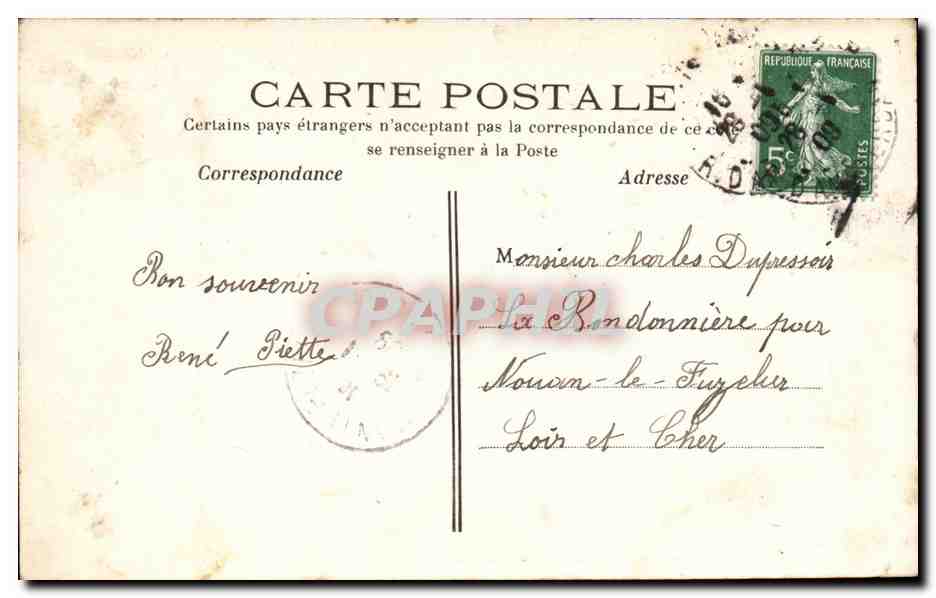 CARTE POSTALE
Certains pays étrangers n'acceptant pas la correspondance de ce
se renseigner à la Poste
Correspondance
Adresse
REPUBLIQUE FRANÇAISE
5c
POSTES
Bon souvenir
René Piette
Monsieur Charles Dupressoir
La Bondonnière par
Nouan-le-Fuzelier
Loir et Cher
CPAPHIL